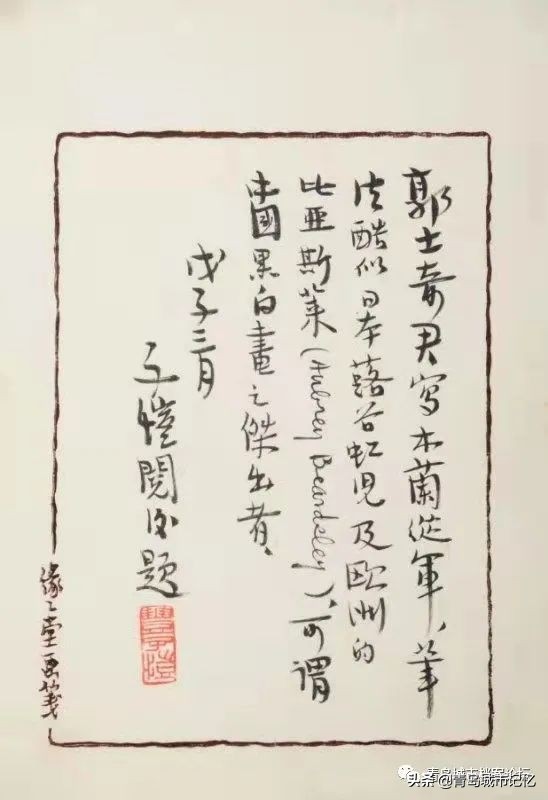 郭士奇君写木蘭從軍、筆
法酷似日本蕗谷虹児及欧洲的
比亞斯萊(Aubrey Beardsley)、可謂
中國黑白畫之傑出者、
戊子三月
子愷閱後題
豐子愷
緣緣堂画箋
青岛城市档案论坛
头条@青岛城市记忆